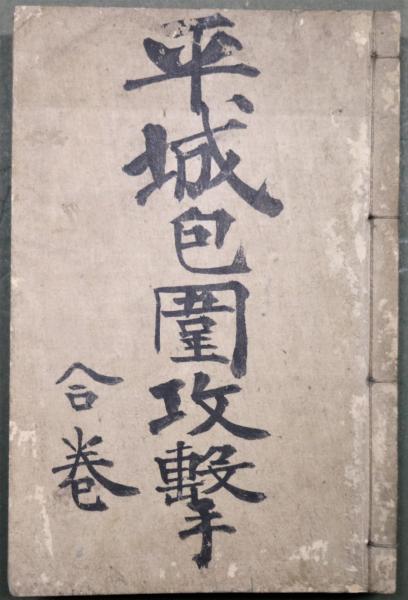 平城包圍攻擊
合卷